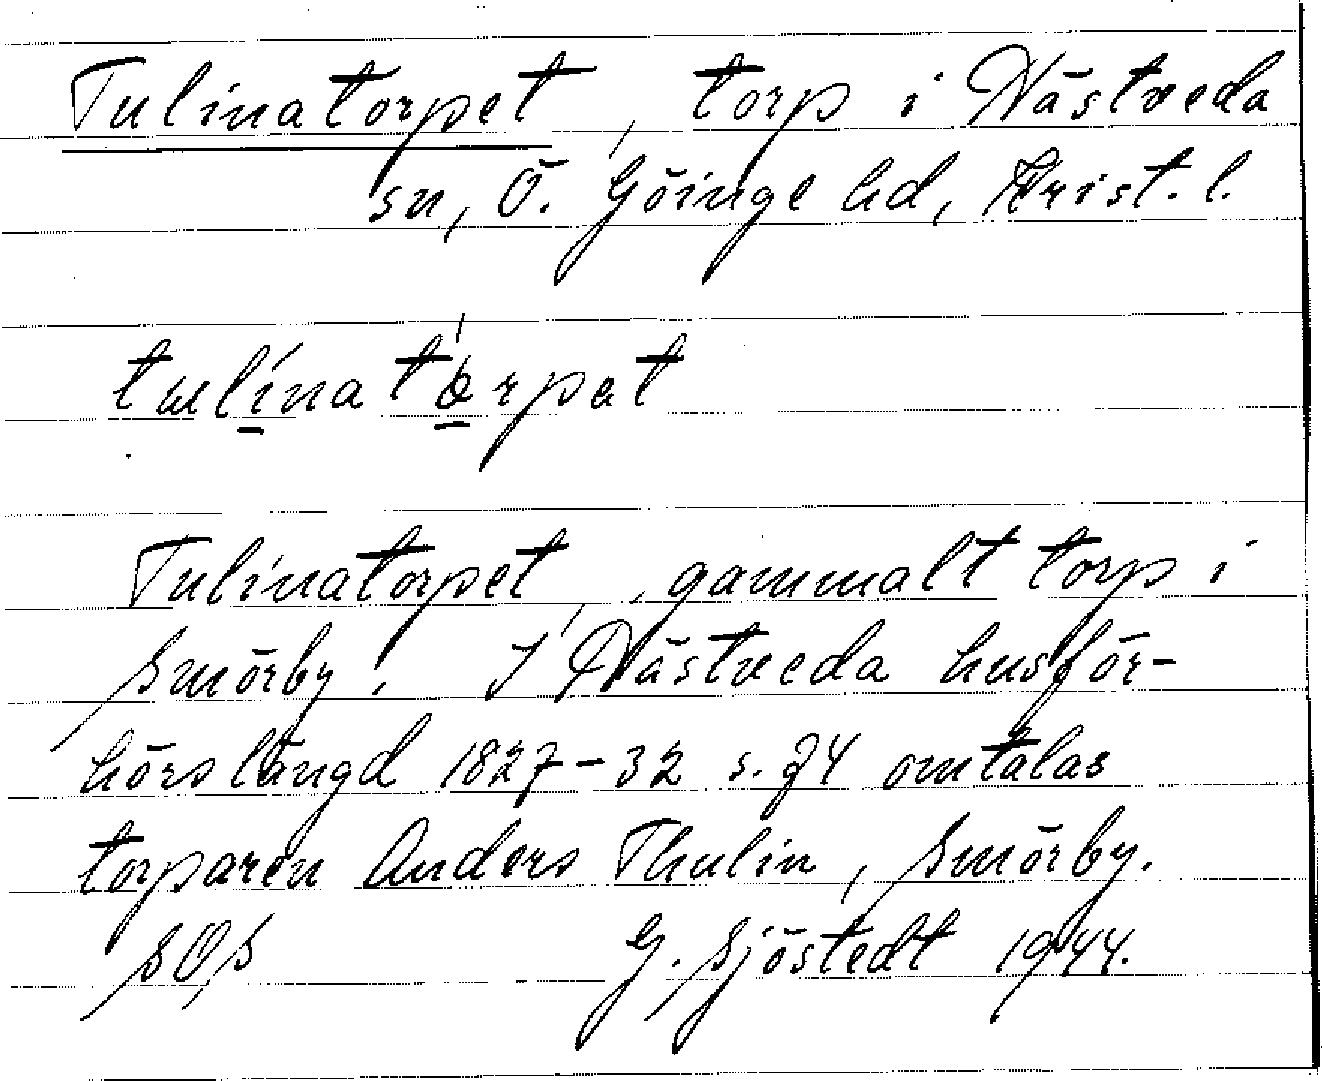 Tulinatorpet, torp i Nästveda
sn, Ö. Göinge hd, Krist. l.
tɯlínatórpat
Tulinatorpet, gammalt torp i
Smörby. I Nästveda husför-
hörslängd 1827-32 s. 74 omtalas
torparen Anders Thulin, Smörby.
SOS G. Sjöstedt 1944.